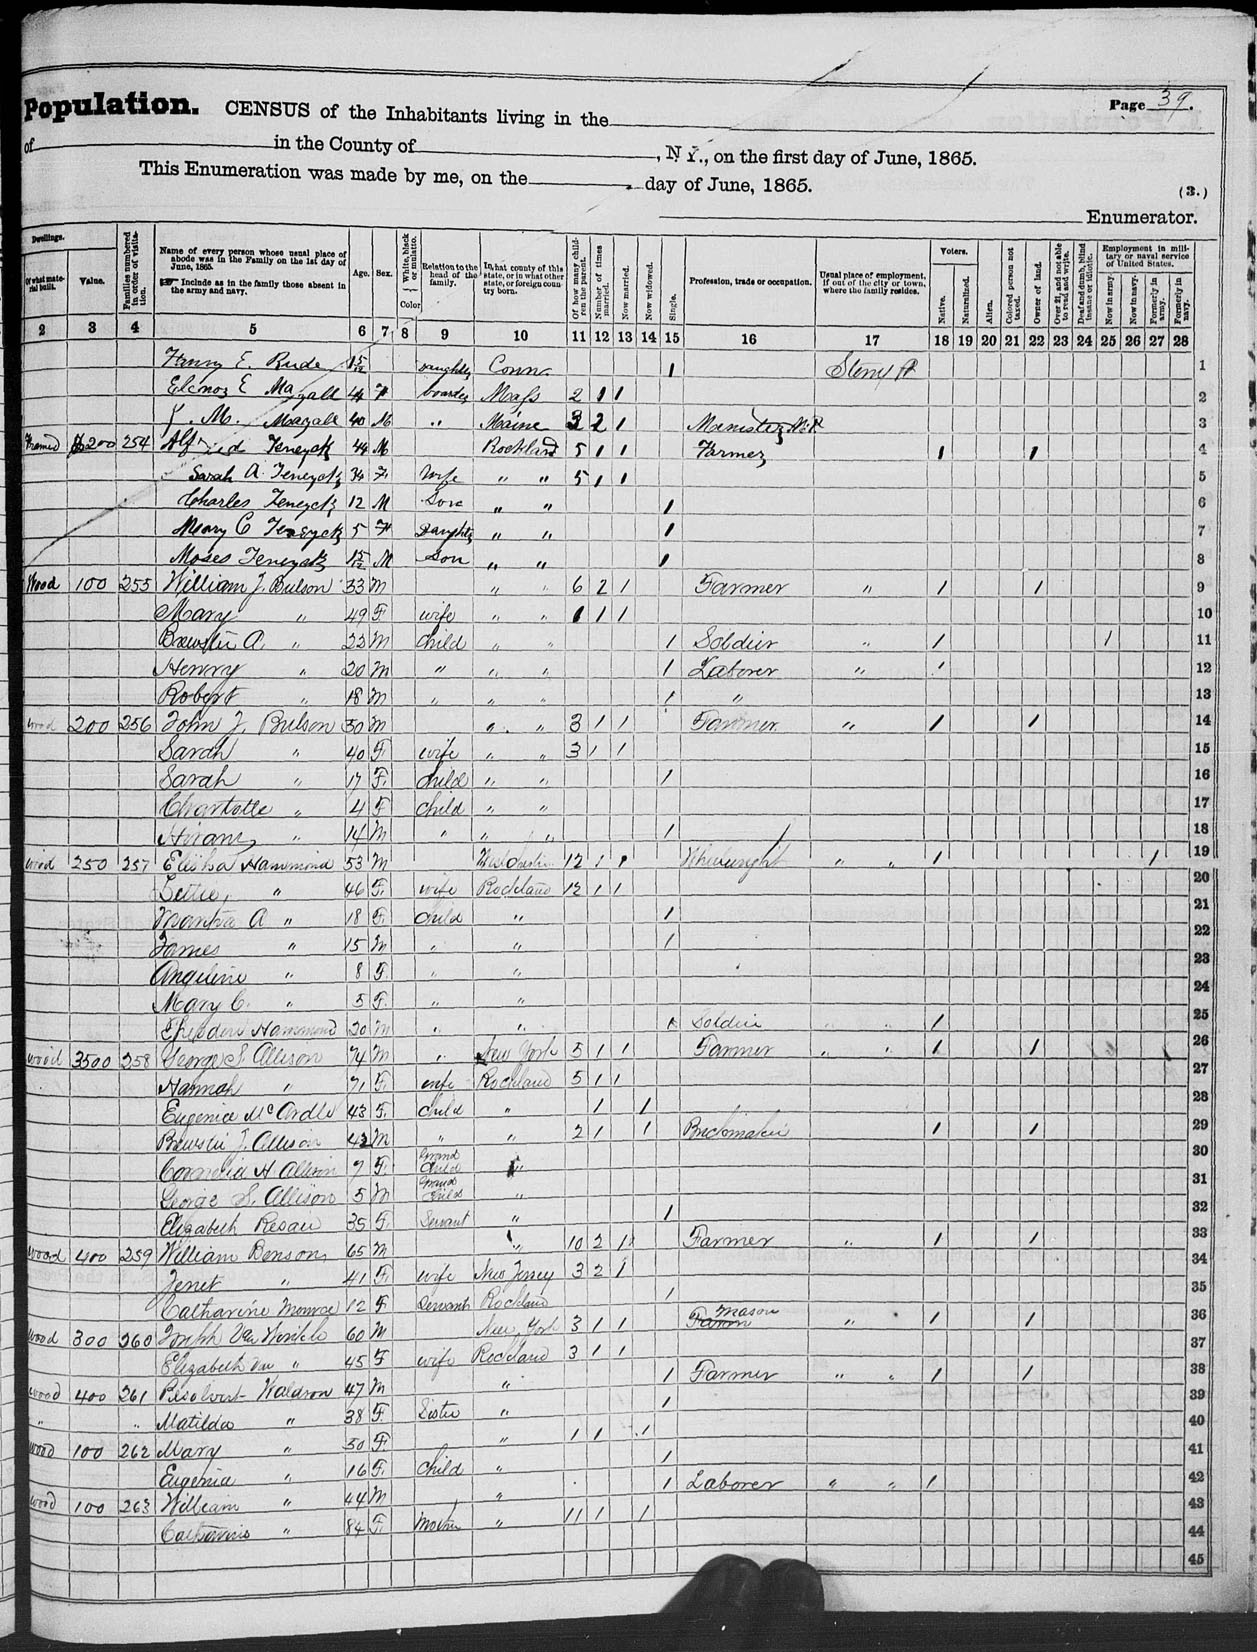 Population. CENSUS of the Inhabitants living in the Page 39.
of in the County of , N. Y., on the first day of June, 1865.
This Enumeration was made by me, on the day of June, 1865. (3.)
Enumerator.
Dwellings. Of what material built. Value. Families numbered in order of visitation. Name of every person whose usual place of abode was in the Family on the 1st day of June, 1865. Include as in the family those absent in the army and navy. Age. Sex. White, black or mulatto. Color Relation to the head of the family. In what county of this state, or in what other state, or foreign country born. Of how many children the parent. Number of times married. Now married. Now widowed. Single. Profession, trade or occupation. Usual place of employment, if out of the city or town, where the family resides. Voters. Native. Naturalized. Alien. Colored person not taxed. Owner of land. Over 21, and not able to read and write. Deaf and dumb, blind insane or idiotic. Employment in military or naval service of United States. Now in army. Now in navy. Formerly in army. Formerly in navy.
2 3 4 5 6 7 8 9 10 11 12 13 14 15 16 17 18 19 20 21 22 23 24 25 26 27 28
E. Rude Daughter Conn. 1 1
E 44 F boarder Mass 2 1 1 2
M. 40 M " Maine 3 2 1 3
Framed $200 254 Teneyck 44 M Rockland 5 1 1 Farmer 1 1 4
Sarah A. Teneyck 34 F Wife " " 5 1 1 5
Charles Teneyck 12 M Son " " 1 6
Mary C Teneyck 5 F Daughter " " 1 7
Moses Teneyck M Son " " 1 8
Wood 100 255 William J. Bulson 33 M " " 6 2 1 Farmer " 1 1 9
Mary " 49 F wife " " 1 1 1 10
Brewster A. " 22 M child " " 1 Soldier " 1 1 11
Henry " 20 M " " " 1 Laborer " 1 12
Robert " 18 M " " " 1 " 13
wood 200 256 John J. Bulson 30 M " " 3 1 1 Farmer " 1 1 14
Sarah " 40 F wife " " 3 1 1 15
Sarah " 17 F child " " 1 16
Charlotte " 4 F child " " 17
Hiram " 14 M " " " 1 18
wood 250 257 Elisha Hammond 53 M Westchester 12 1 1 Wheelwright " " 1 1 19
" 46 F wife Rockland 12 1 1 20
Martha A " 18 F child " 1 21
James " 15 M " " 1 22
Angeline " 8 F " " 23
Mary C. " 5 F " " 24
Theodore Hammond 20 M " " 1 Soldier " " 1 25
wood 3500 258 George S. Allison 74 M " New York 5 1 1 Farmer " " 1 1 26
Hannah " 71 F wife Rockland 5 1 1 27
Eugenia McArdle 43 F child " 1 1 28
Brewster J. Allison 42 M " " 2 1 1 Brickmaker 1 1 29
Cornelia H Allison 7 F Grand child " 30
George S. Allison 5 M Grand child " 31
Elizabeth 35 F Servant " 1 32
wood 400 259 William Benson 65 M " 10 2 1 Farmer " 1 1 33
Jenet " 41 F wife New Jersey 3 2 1 34
Catharine Monroe 12 F Servant Rockland 1 35
wood 300 260 Joseph Van Winkle 60 M New York 3 1 1 Mason " " 1 1 36
Elizabeth Van " 45 F wife Rockland 3 1 1 37
wood 400 261 Resolvert Waldron 47 M " 1 Farmer " " 1 1 38
" " Matilda " 38 F Sister " 1 39
wood 100 262 Mary " 50 F " 1 1 1 40
Eugenia " 16 F child " 1 41
wood 100 263 William " 44 M " 1 Laborer " " 1 42
Catharine " 84 F Mother " 11 1 1 43
44
45